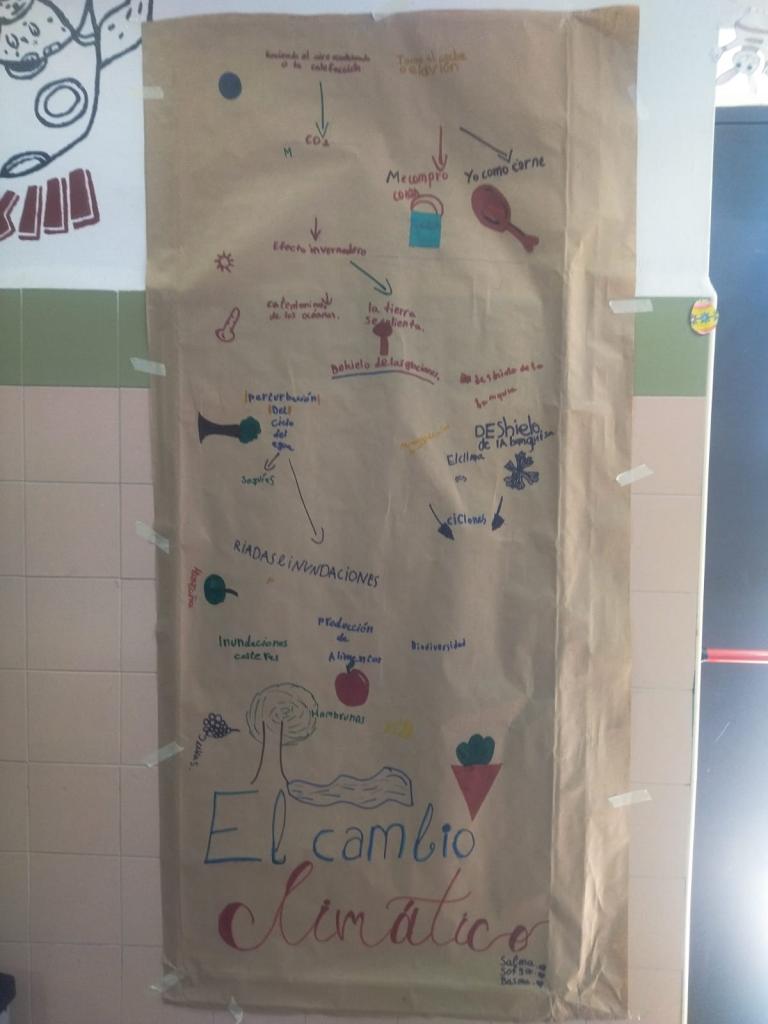 Haciendo el aire acondicionado
o la calefacción
Tomo el coche
o el avión
CO2
M
Me compro
cosas
Yo como carne
Efecto invernadero
de los océanos.
la tierra
se calienta.
Dehielo de los glaciares.
deshielo de la
banquisa
perturbación
Del
ciclo
del
agua
DEshielo
de lA banquisa
El clima
Sequías
ciclones
RIADAS E INUNDACIONES
Inundaciones
costeras
Producción
de
Alimentos
Biodiversidad
Hambrunas
El cambio
climático
Salma
Sofia
Basma